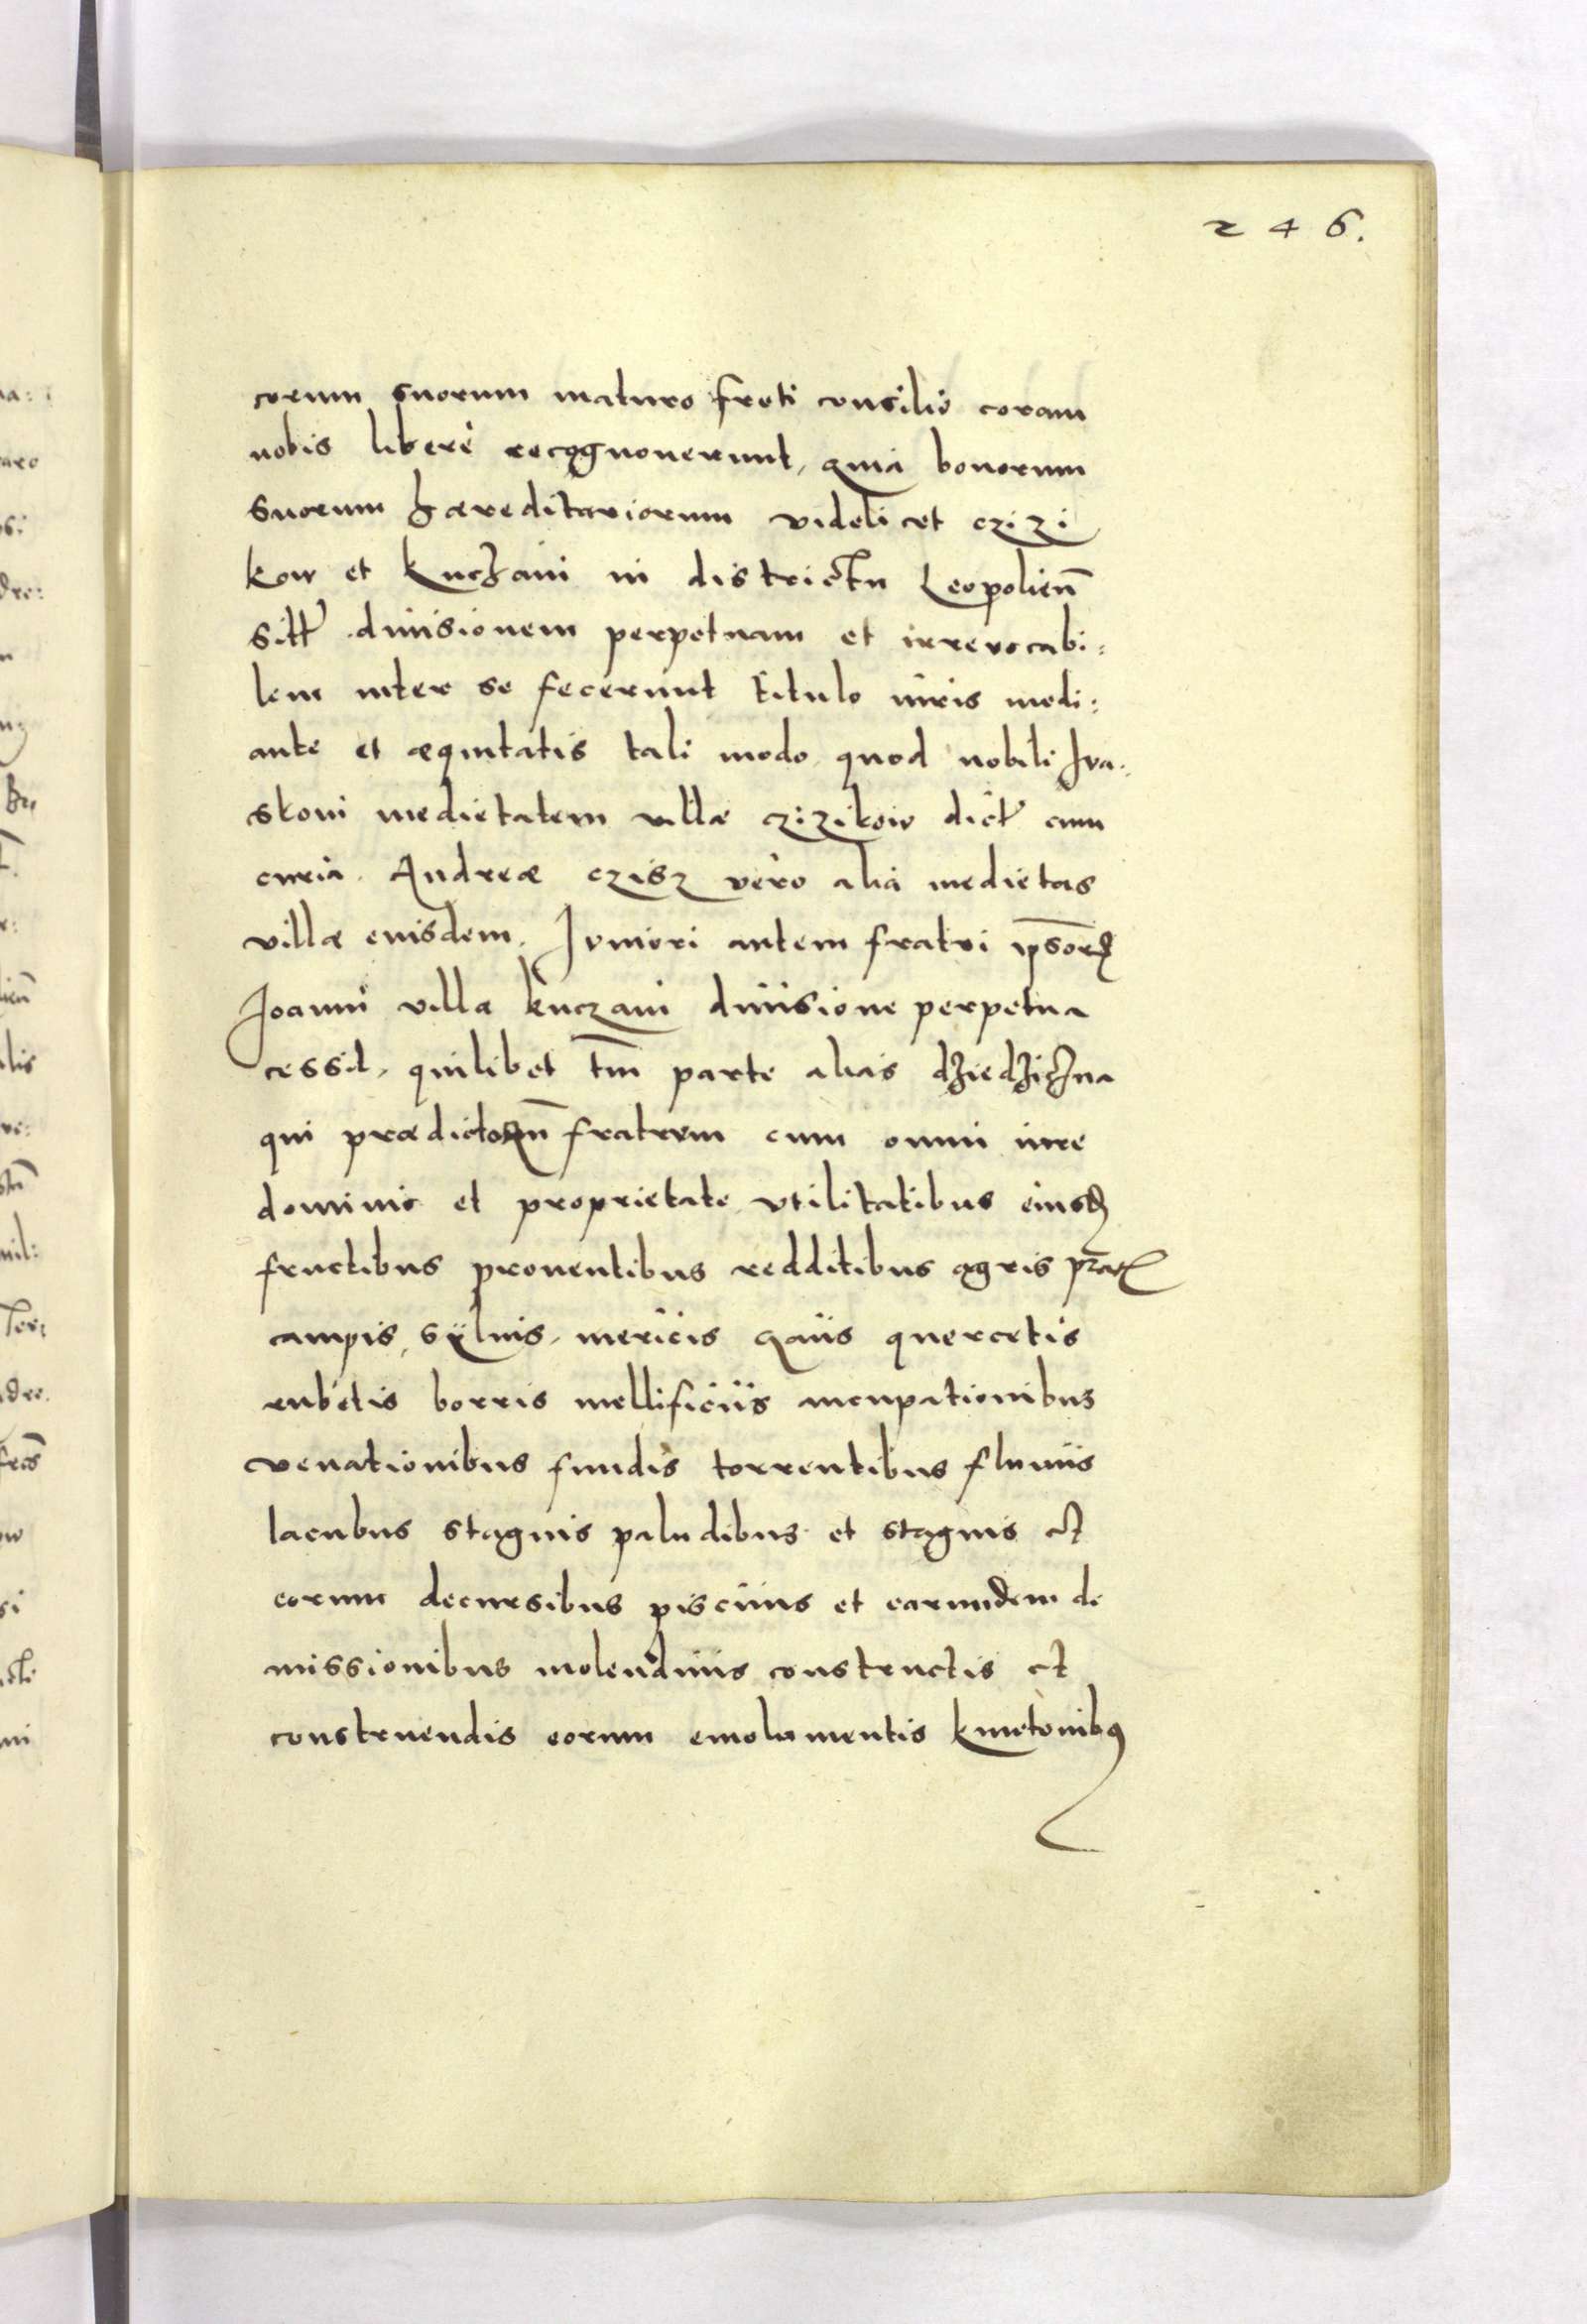 246.
corum suorum maturo freti consilio coram
nobis liberè recognouerunt, quia bonorum
suorum hæreditariorum videlicet czizi
kow et kuchani in districtu Leopolien̄
sitt̃ diuisionem perpetuam et irreuocabi:
lem inter se fecerunt titulo iuris medi:
ante et æquitatis tali modo quod nobili Iva:
skoui medietatem villæ czizikow dict̃ cum
curia. Andreæ czisz vero alia medietas
villæ euisdem. Iuniori autem fratri ipsorꝫ
Joanni villa kuczani diuisione perpetua
cessit, quilibet tm̄ parte alias dziedzichna
qui prædictorum fratrum cum omni iure
dominio et proprietate vtilitatibus eiusdꝫ
fructibus prouentibus redditibus agris prat
campis, syluis, mericis gaiis quercetis
rubetis borris mellificiis aucupationibus
venationibus fundis torrentibus fluuiis
lacubus stagnis paludibus et stagnis et
eorum decursibus piscinis et earundem di
missionibus molendinis constructis et
construendis eorum emolumentis kmetonibꝰ